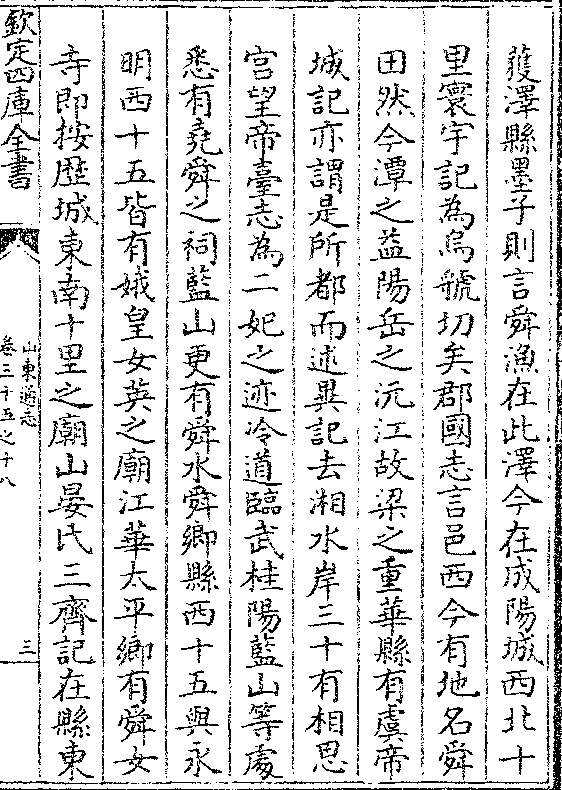 蒦澤縣墨子則言舜漁在此澤今在成陽城西北十
里寰宇記為烏號切矣郡國志言邑西今有地名舜
田然今潭之益陽岳之沅江故梁之重華縣有虞帝
城記亦謂是所都而述異記去湘水岸三十有相思
宫望帝臺志為二妃之迹冷道臨武桂陽藍山等處
悉有堯舜之祠藍山更有舜水舜鄉縣西十五與永
明西十五皆有娥皇女英之廟江華太平鄉有舜女
寺即按歷城東南十里之廟山晏氏三齊記在縣東
欽定四庫全書
山東通志
卷三十五之十八
三